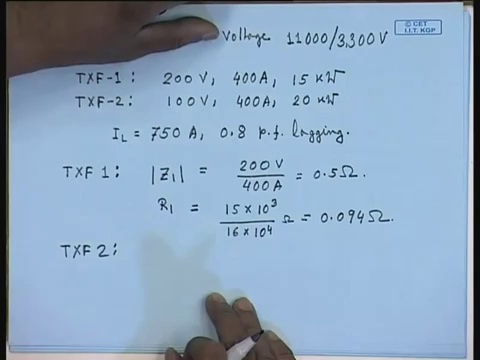 Voltage 11000/3,300V
© CET
I.I.T. KGP
TXF-1: 200 V, 400A, 15 KW
TXF-2: 100 V, 400A, 20 KW
I_L = 750 A, 0.8 p.f. lagging.
TXF 1: |Z₁| = 200 V / 400 A = 0.5Ω.
R₁ = 15 × 10³ / 16 × 10⁴ Ω = 0.094Ω.
TXF 2: